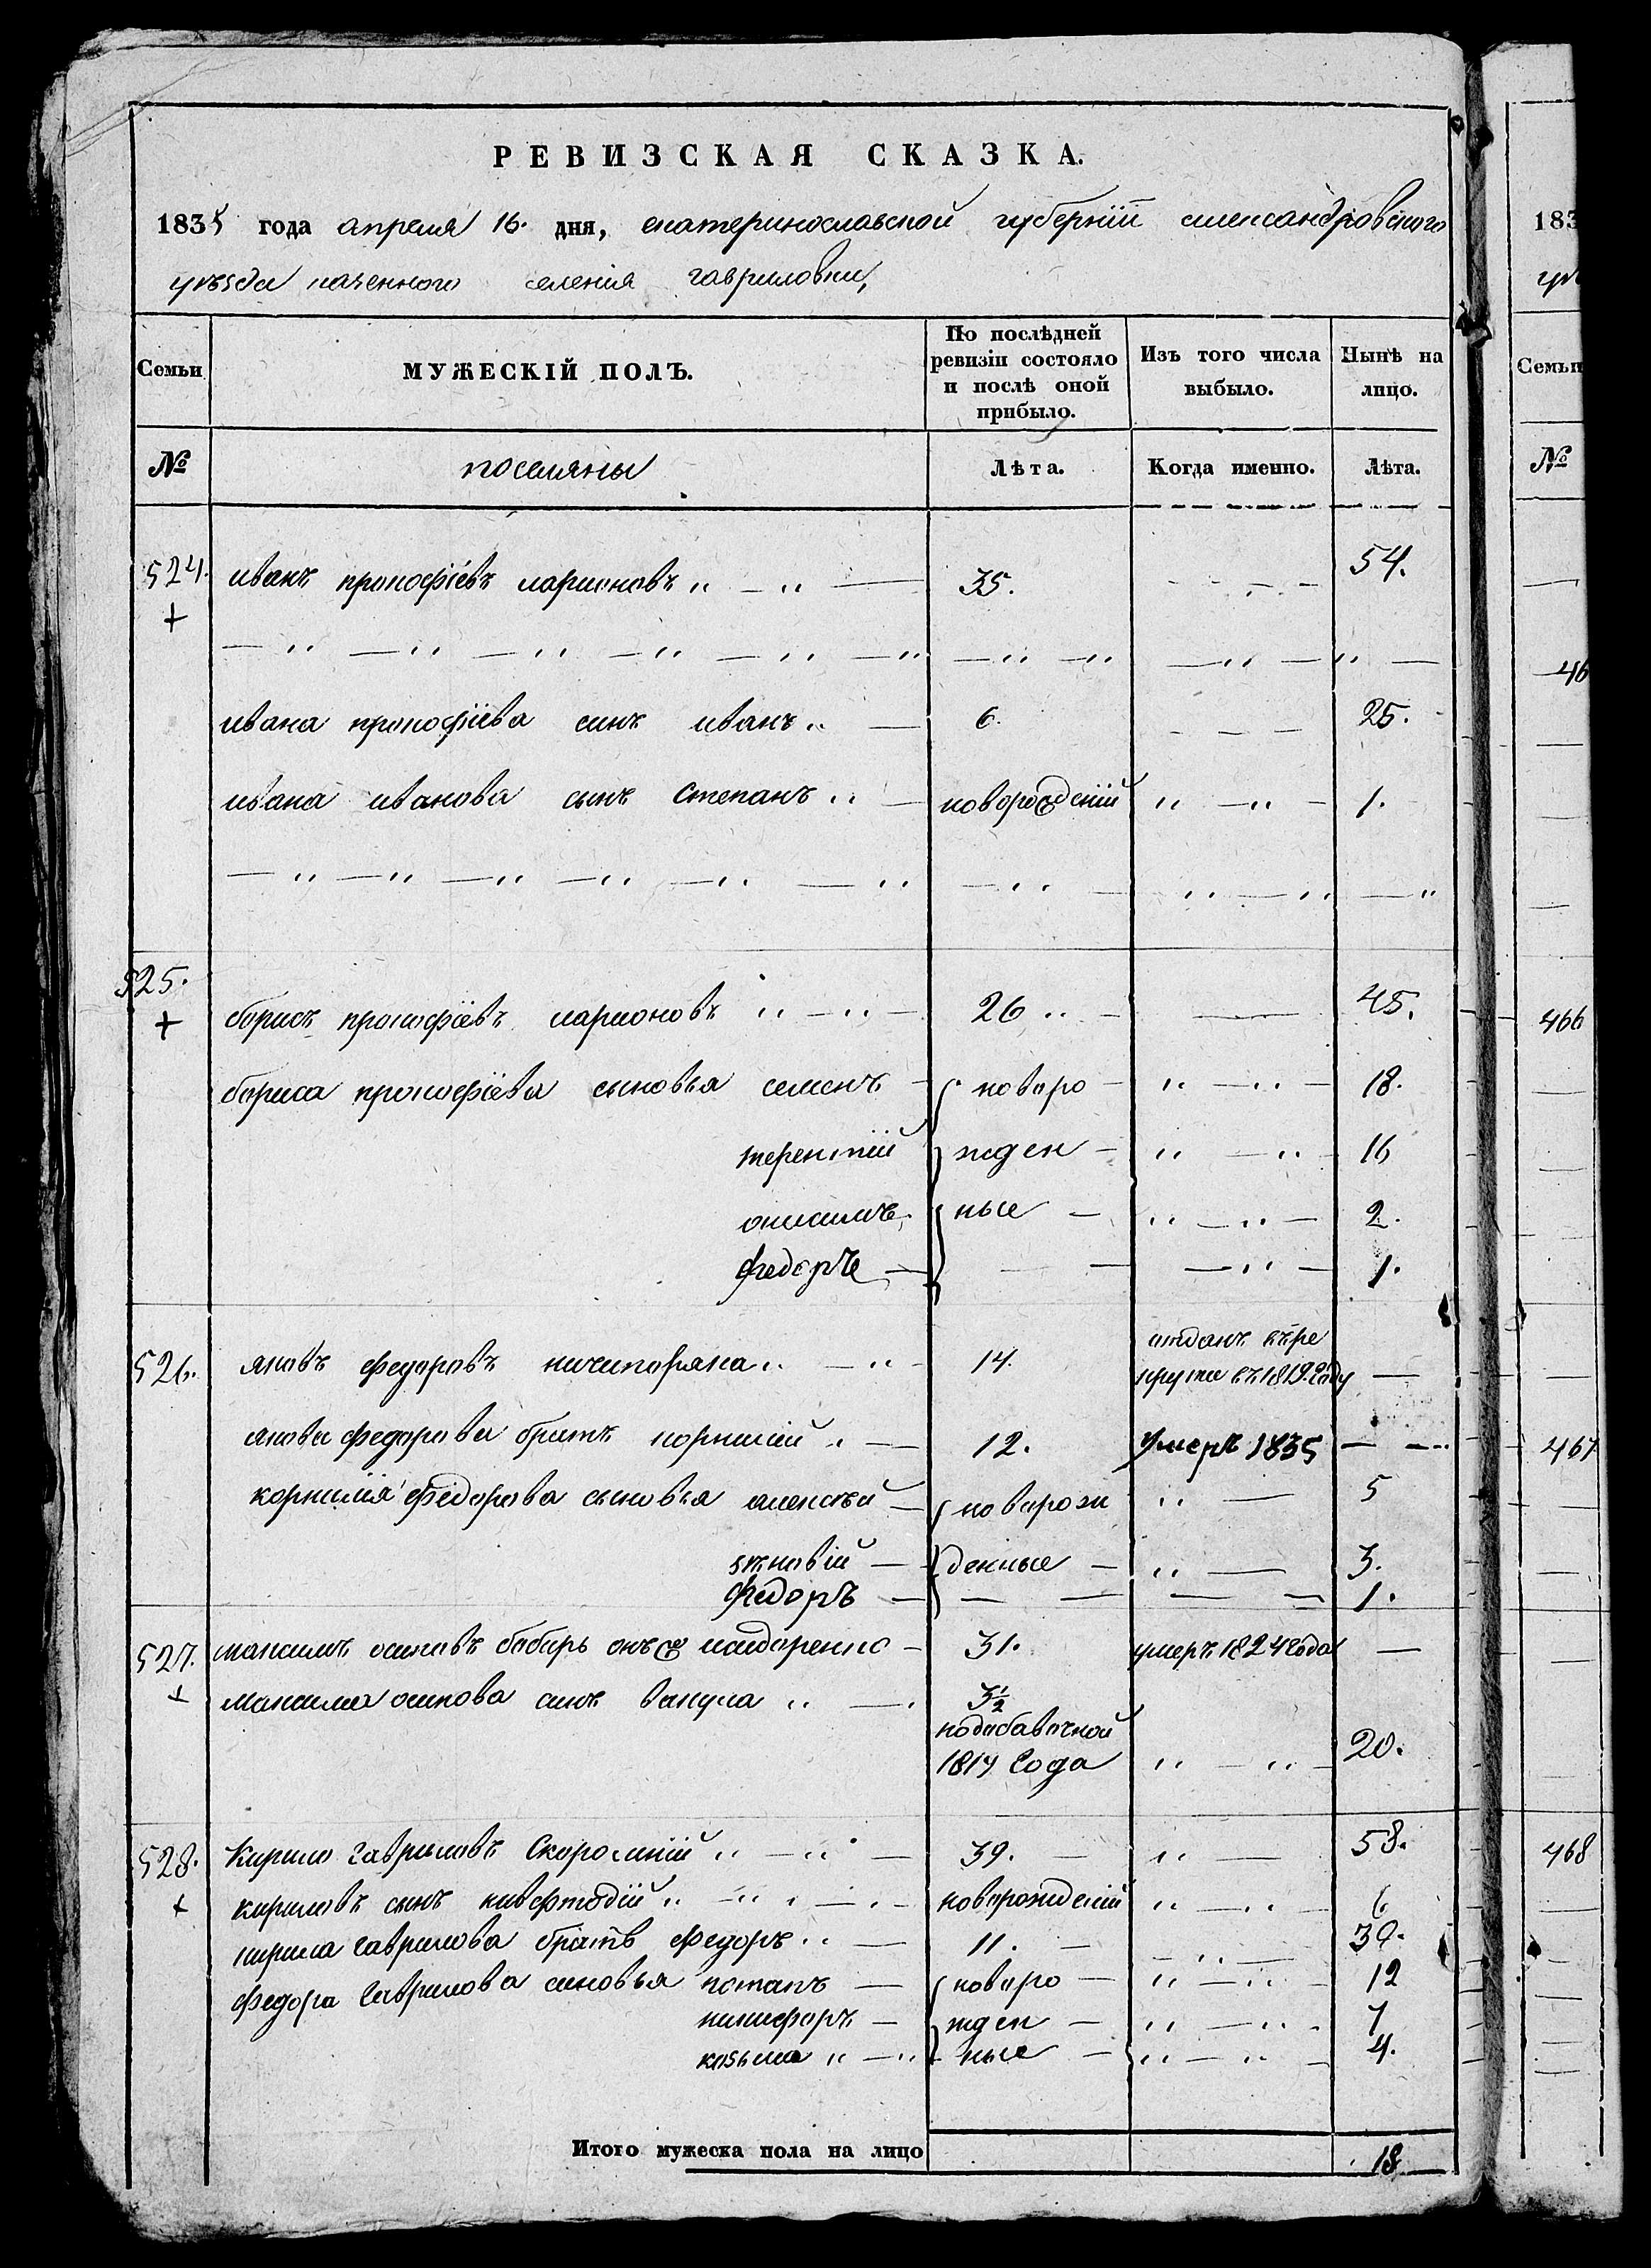 РЕВИЗСКАЯ СКАЗКА.
1835 года апреля 16. дня, екатеринославской губерніи александровского
уѣзда казенного селенія гавриловки,
Семьи
МУЖЕСКІЙ ПОЛЪ.
По послѣдней ревизіи состояло и послѣ оной прибыло.
Изъ того числа выбыло.
Нынѣ на лицо.
№ поселяны Лѣта. Когда именно. Лѣта.
524. иванъ прокофіевъ ларионовъ 35. 54.
ивана прокофіева синъ иванъ 6. 25.
ивана иванова сынъ степанъ 1.
525. борисъ прокофіевъ ларионовъ 26 45.
бориса прокофіева сыновья семенъ новоро 18.
терентій жден 16
онисимъ ные 2.
федоръ 1.
526. яковъ федоровъ ничипоряка 14. отданъ въ ре
круты въ 1819. году
якова федорова братъ корнилій 12. умеръ 1835
корнилія федорова сыновья алексѣй новорож 5
зѣновій денные 3.
федоръ 1.
527. максимъ осиповъ бабарь онъ же 31. умеръ 1824 года
максима осипова синъ вакула 3½
подобавочной
1814 года 20.
528. Кирило гавриловъ 39. 58.
кириловъ сынъ новорожденій 6
кирила гаврилова братъ федоръ 11. 30.
федора гаврилова синовья потапъ новоро 12
никифоръ жден 7
козьма ные 4.
Итого мужеска пола на лицо 18
183
Семьи
№
46
466
467
468